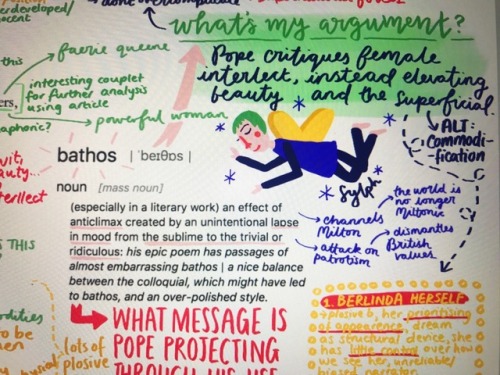 what's my argument?
Pope critiques female
intellect, instead elevating
beauty and the superficial.
ALT:
Commodi-
fication
this
faerie queene
interesting couplet
for further analysis
using article
powerful woman
aphonic?
bathos | ˈbeɪθɒs |
noun [mass noun]
(especially in a literary work) an effect of
anticlimax created by an unintentional lapse
in mood from the sublime to the trivial or
ridiculous: his epic poem has passages of
almost embarrassing bathos | a nice balance
between the colloquial, which might have led
to bathos, and an over-polished style.
Sylph
channels
Milton
the world is
no longer
Miltonic
attack on
patriotism
dismantles
British
values
THIS
WHAT MESSAGE IS
POPE PROJECTING
THROUGH HIS USE
lots of
plosive
1. BERLINDA HERSELF
plosive b, her prioritising
of appearance, dream
as structural device, she
has little control over how
we see her, unreliable/
biased narrator